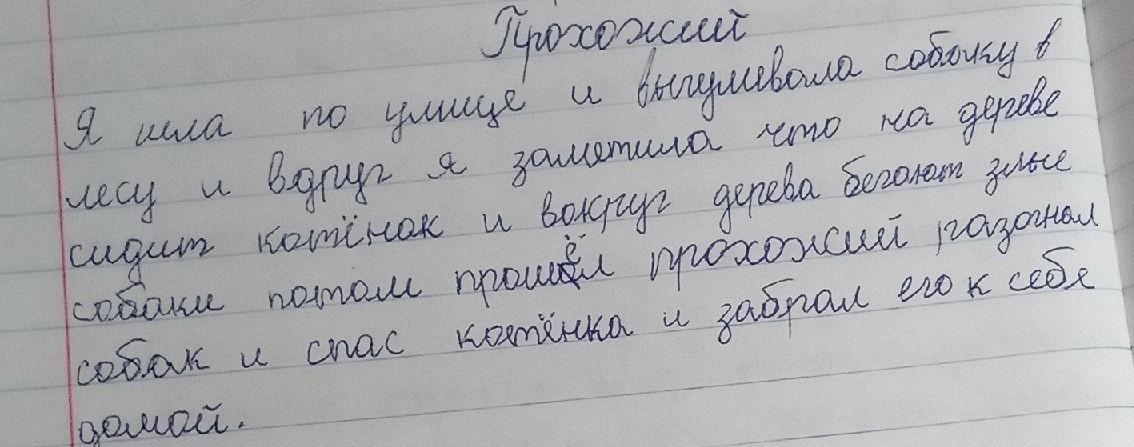 Прохожий
Я шла по улице и выгумевала собочку в
лесу и вдруг я заметила что на дереве
сидит котёнок и вокруг дерева бегают злые
собаки потом прошёл прохожий разогнал
собак и спас котёнка и забрал его к себе
домой.